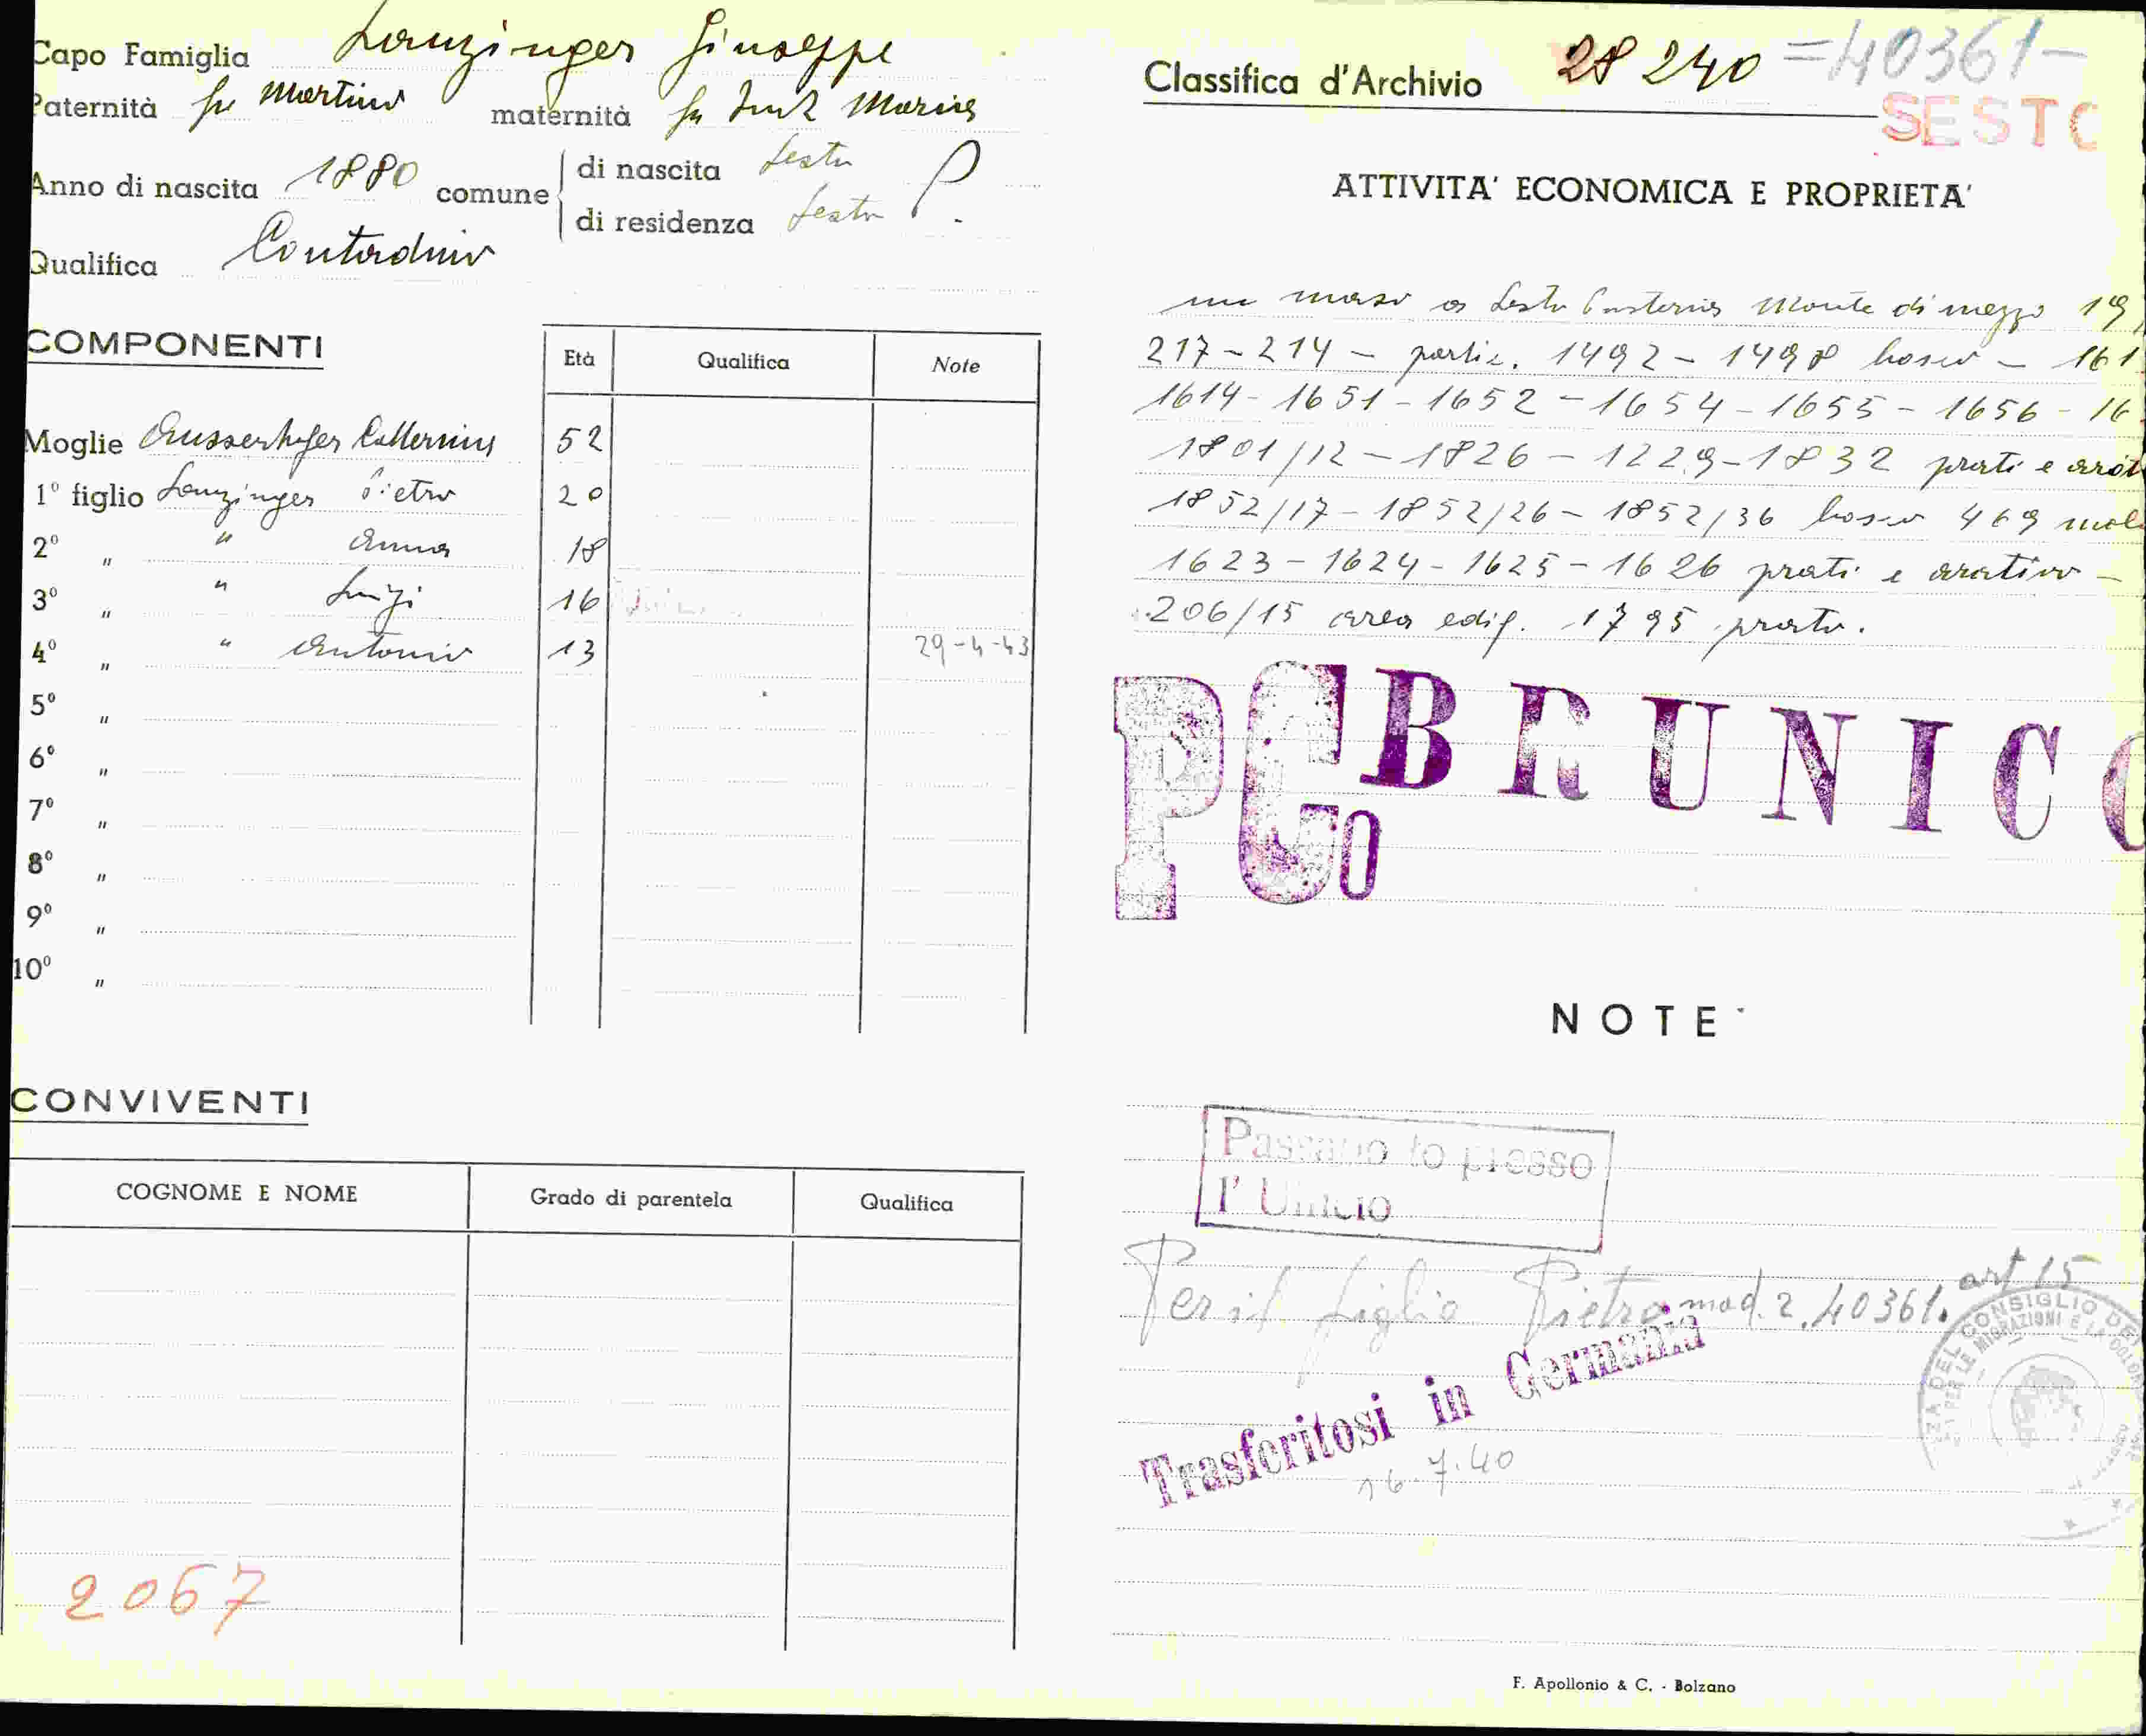 Capo Famiglia Lanzinger Giuseppe
Paternità fu Martino maternità fu Maria
Anno di nascita 1880 comune di nascita Sesto P.
di residenza Sesto
Qualifica Contadino
COMPONENTI
Età Qualifica Note
Moglie Ausserhofer Catterina 52
1º figlio Lanzinger Pietro 20
2º " " Anna 18
3º " " Luigi 16
4º " " Antonio 13 29-4-43
5º "
6º "
7º "
8º "
9º "
10º "
CONVIVENTI
COGNOME E NOME Grado di parentela Qualifica
2067
Classifica d'Archivio 28240 =40361-
SESTO
ATTIVITA' ECONOMICA E PROPRIETA'
un maso a Sesto Monte di mezzo 19
217-214 - partic. 1492-1498 bosco - 161
1614-1651-1652-1654-1655-1656-16
1801/12-1826-1229-1832 prati e
1852/17-1852/26-1852/36 bosco 469
1623-1624-1625-1626 prati e arativo -
206/15 area edif. 1795 prato.
PC BRUNICO
O
NOTE
presso
l'Ufficio
Per il figlio Pietro mod. 2. 40361. art 15
Trasferitosi in Germania
16.7.40
CONSIGLIO DEI
PER LE MIGRAZIONI E LA
F. Apollonio & C. - Bolzano